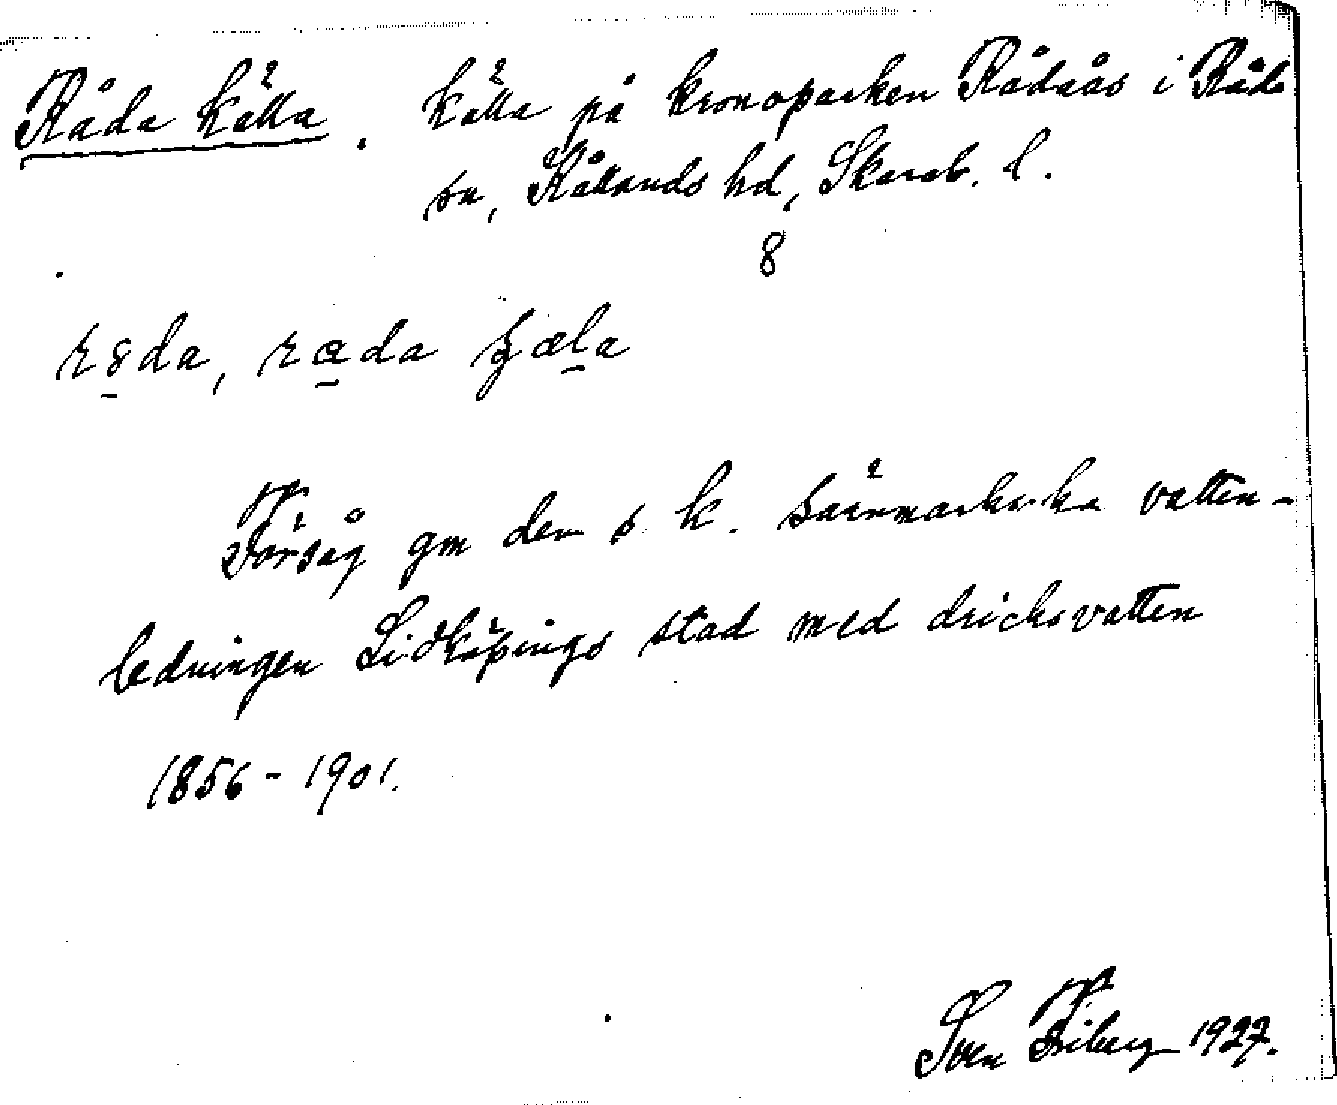 Råda Källa. Källa på kronoparken Rådaås i Råda
sn, Kållands hd, Skarab. l.
8
Försåg gm den s. k. vatten-
ledningen Lidköpings stad med dricksvatten
1856-1901.
Sven Friberg 1927.